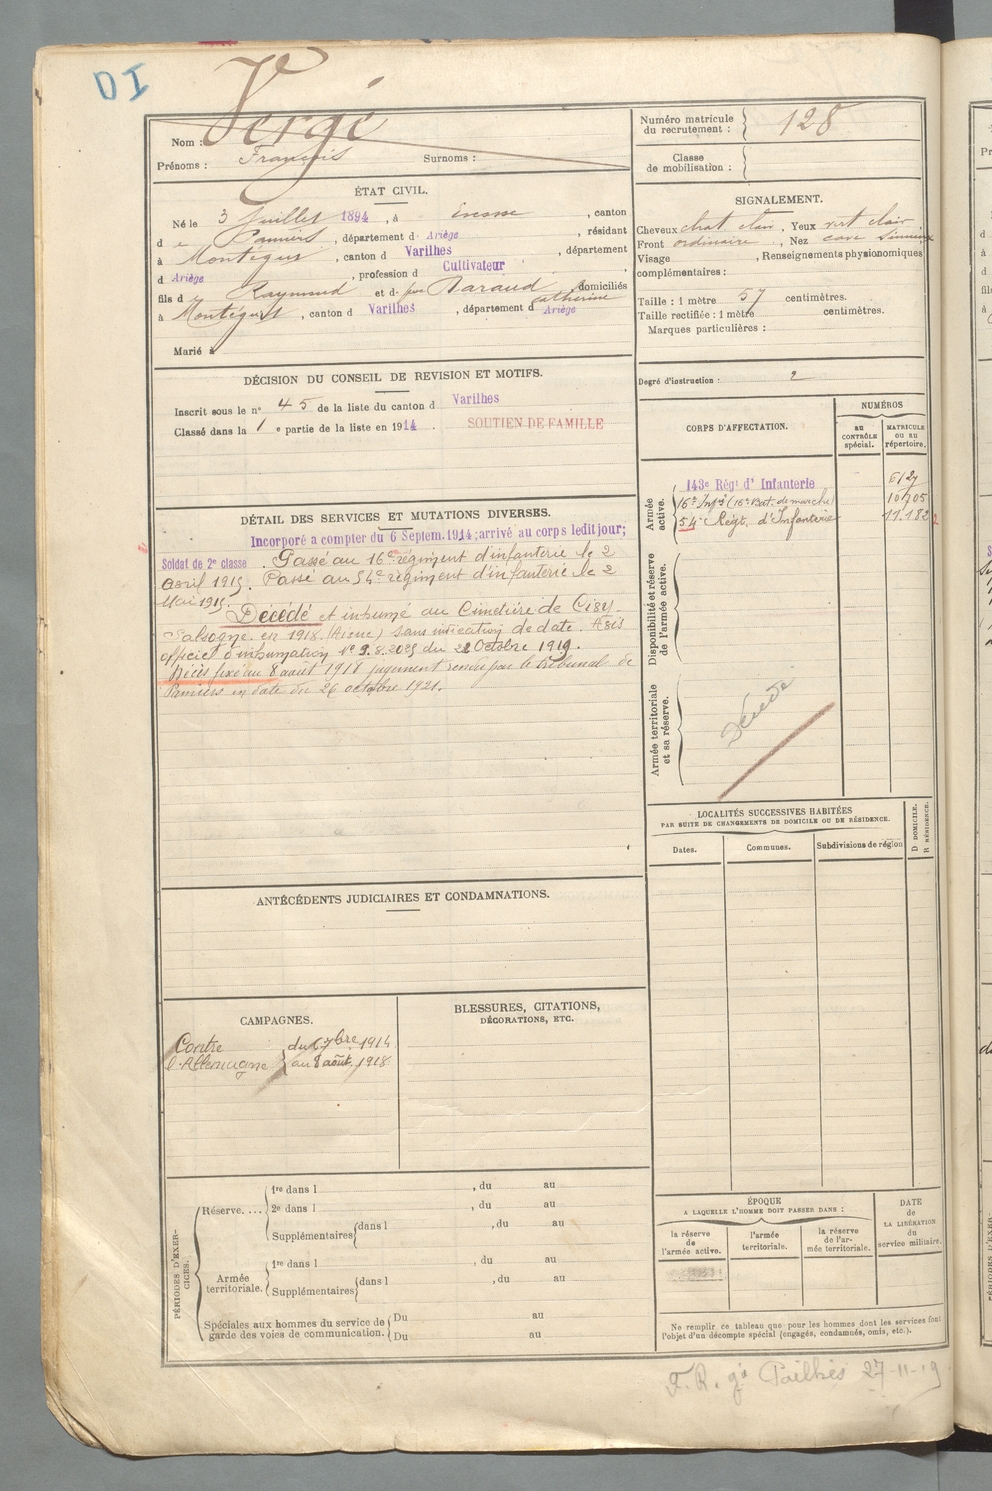 DI
Nom : Vergé
Prénoms : François Surnoms :
Numéro matricule du recrutement : 128
Classe de mobilisation :
ÉTAT CIVIL.
Né le 3 Juillet 1894, à Escosse, canton
d e Pamiers, département d Ariège, résidant
à Montégut, canton d Varilhes, département
d Ariège, profession d Cultivateur
fils d Raymond et d feue Baraud Catherine domiciliés
à Montégut, canton d Varilhes, département d Ariège
Marié à
SIGNALEMENT.
Cheveux chat. clair, Yeux vert clair
Front ordinaire, Nez cave sinueux
Visage , Renseignements physionomiques
complémentaires :
Taille : 1 mètre 57 centimètres.
Taille rectifiée : 1 mètre centimètres.
Marques particulières :
Degré d'instruction : 2
DÉCISION DU CONSEIL DE REVISION ET MOTIFS.
Inscrit sous le n° 45 de la liste du canton d Varilhes
Classé dans la 1 e partie de la liste en 1914 SOUTIEN DE FAMILLE
DÉTAIL DES SERVICES ET MUTATIONS DIVERSES.
Incorporé a compter du 6 Septem. 1914; arrivé au corps ledit jour;
Soldat de 2e classe. Passé au 16e régiment d'infanterie le 2
avril 1915. Passé au 54e régiment d'infanterie le 2
Mai 1915.
Décédé et inhumé au Cimetière de Ciry-
Salsogne en 1918 (Aisne) sans indication de date. Avis
officiel d'inhumation N° 9.8.2029 du 22 Octobre 1919.
Décès fixé au 8 août 1918 jugement rendu par le tribunal de
Pamiers en date du 26 octobre 1921.
CORPS D'AFFECTATION.
NUMÉROS
au CONTRÔLE spécial.
MATRICULE ou au répertoire.
Armée active.
143e Régt d'Infanterie 6127
16e Infrie (16e Bat. de marche) 10705
54e Régt. d'Infanterie 11.182
Disponibilité et réserve de l'armée active.
Armée territoriale et sa réserve.
Décédé
LOCALITÉS SUCCESSIVES HABITÉES
PAR SUITE DE CHANGEMENTS DE DOMICILE OU DE RÉSIDENCE.
Dates. Communes. Subdivisions de région
D DOMICILE.
R RÉSIDENCE.
ANTÉCÉDENTS JUDICIAIRES ET CONDAMNATIONS.
CAMPAGNES.
Contre du 6 7bre 1914
l'Allemagne au 8 août 1918
BLESSURES, CITATIONS,
DÉCORATIONS, ETC.
PÉRIODES D'EXERCICES.
Réserve....
1re dans l , du au
2e dans l , du au
Supplémentaires dans l , du au
Armée territoriale.
1re dans l , du au
Supplémentaires dans l , du au
Spéciales aux hommes du service de Du au
garde des voies de communication. Du au
ÉPOQUE
A LAQUELLE L'HOMME DOIT PASSER DANS :
la réserve de l'armée active.
l'armée territoriale.
la réserve de l'armée territoriale.
DATE de LA LIBÉRATION du service militaire.
Ne remplir ce tableau que pour les hommes dont les services font
l'objet d'un décompte spécial (engagés, condamnés, omis, etc.).
F. R. Pailhès 27-11-19